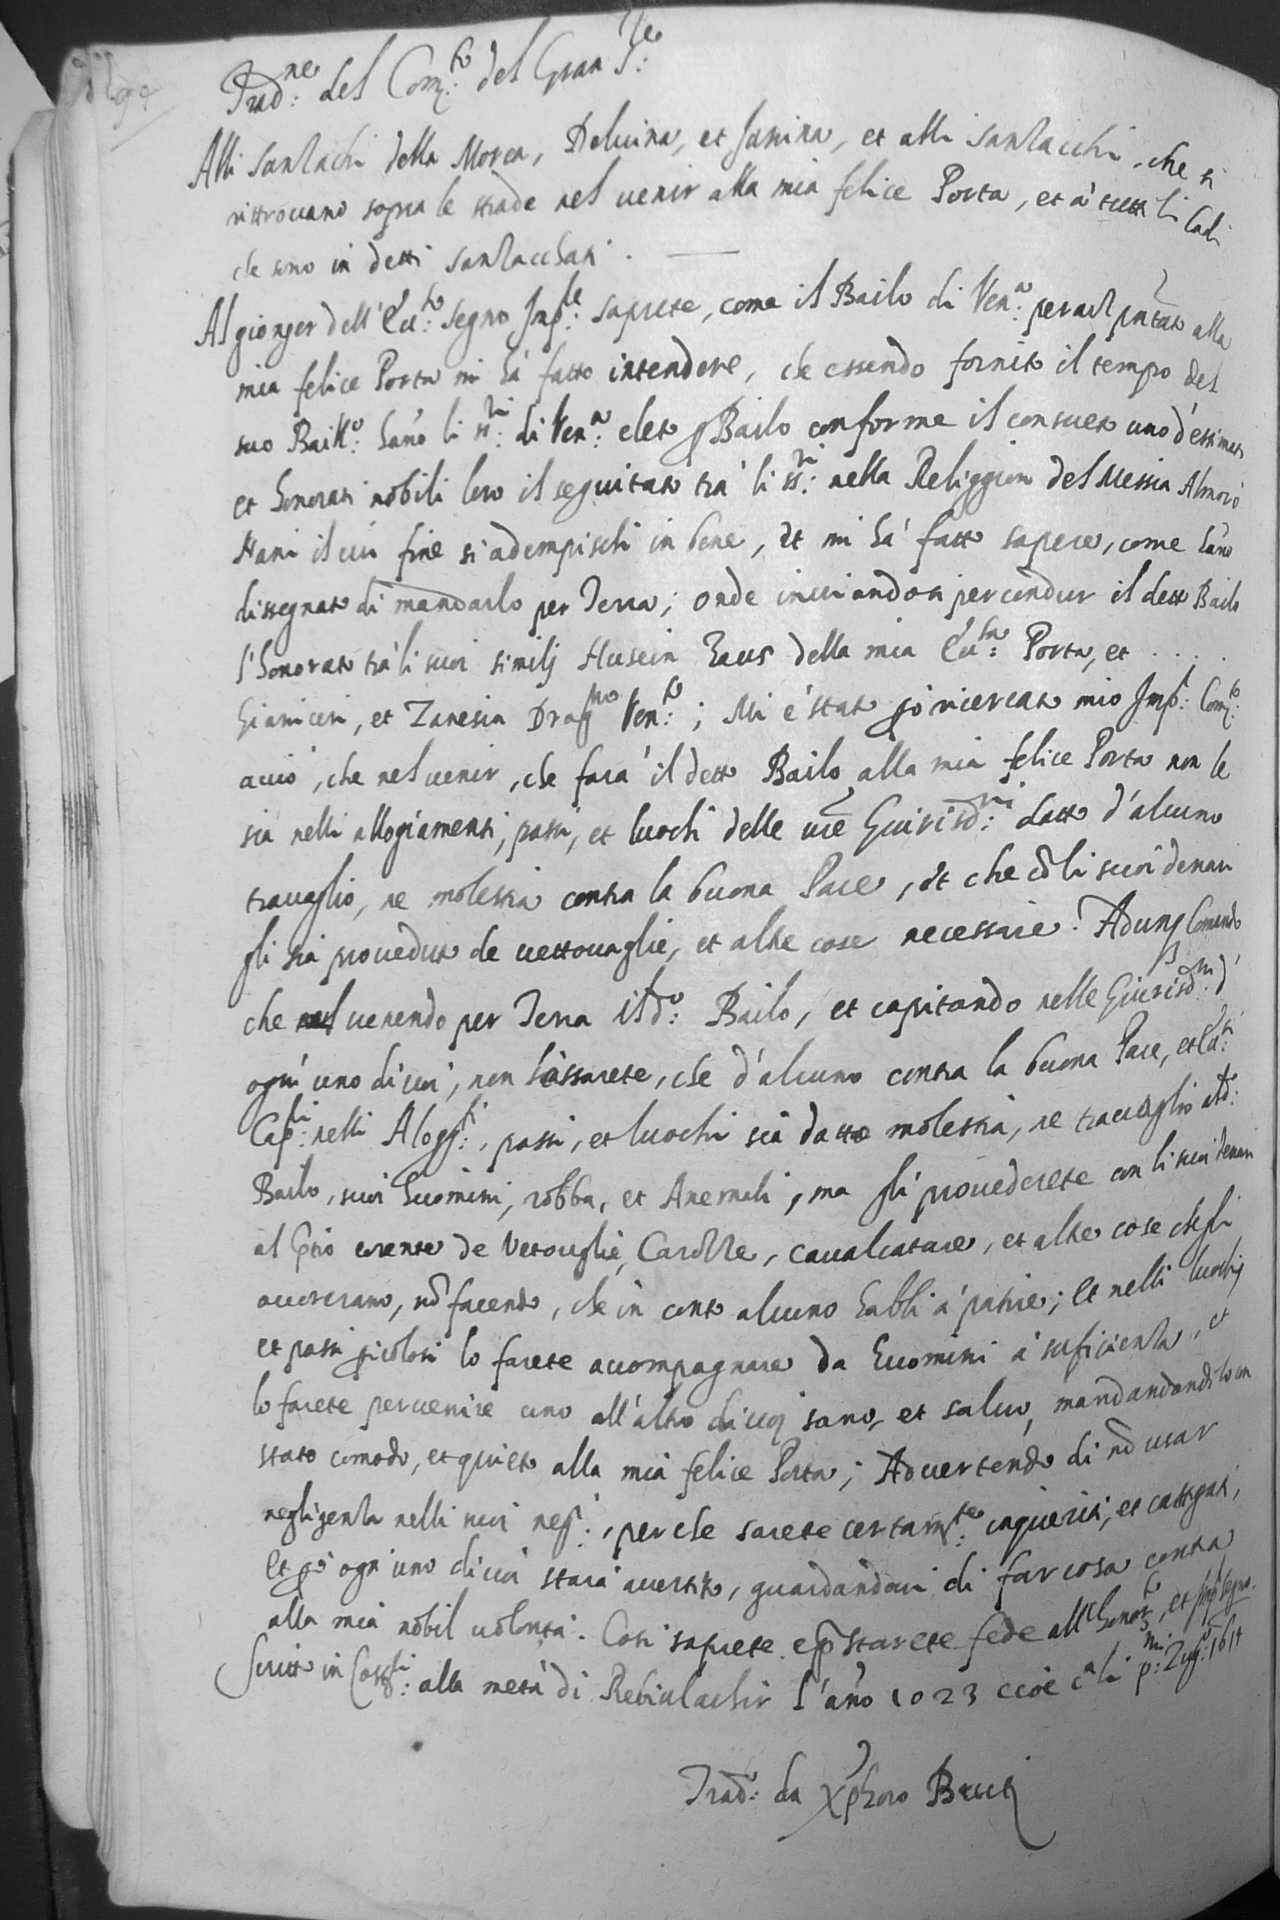 Trad:ne del Com:to del Gran S:re
Alli Sanzachi della Morea, Deluina, et Janina, et alli sanzacchi, che si
rittrouano sopra le strade nel uenir alla mia felice Porta, et à tutti li Cadi
che sono in detti sanzacchati.
Al gionger dell' Ecc:to segno Imp:le saprete, come il Bailo di Ven:a per
mia felice Porta mi hà fatto intendere, che essendo fornito il tempo del
suo Baill:o hano li ss:ri di Ven:a eleto p Bailo conforme il consueto uno d'estimati
et honorati nobili loro il seguitato trà li ss:ri nella Religgion del Messia Almorò
Nani il cui fine si adempischi in bene, et mi hà fatto sapere, come hano
dissegnato di mandarlo per Terra; onde inuiandosi per condur il detto Bailo
l'honorato trà li suoi similj Husein Zaus della mia Ecc:sa Porta, et . . . .
Gianiceri, et Zanesin Drag:no Ven:to; Mi è stato ricercato mio Imp:l Com:to
acciò, che nel uenir, che farà il detto Bailo alla mia felice Porta non le
sia nelli allogiamenti, passi, et luochi delle uře Giurisd:ni datto d'alcuno
trauaglio, ne molestia contra la buona Pace, et che cō li suoi denari
gli sia proueduto de uettouaglie, et altre cose necessarie. Adunq Comando
che uenendo per Terra il d:o Bailo, et capitando nelle Giurisd:ni d'
ogni uno di uoi, non lassarete, che d'alcuno contra la buona Pace, et
Cap:li nelli Alogg:ti, passi, et luochi sia datto molestia, ne trauaglio al d:o
Bailo, suoi huomini, robba, et Anemali, ma gli prouederete con li suoi denari
al corente de Vetouaglie, Carozze, caualcature, et altre cose che gli
occorerano, nō facendo, che in conto alcuno habbi à patire; Et nelli luochj
et passi picolosi lo farete accompagnare da huomini à suficienza, et
lo farete peruenire uno all'altro di uoj sano, et saluo, mandandolo con
stato comodo, et quieto alla mia felice Porta; Aduertendo di nō usar
negligenza nelli miei neg:i, perche sarete certam:te inquiriti, et castigati,
Et pò ogni uno di uoi starà auertito, guardandoui di far cosa contra
alla mia nobil uolontà. Così saprete et prestarete fede all' honor:to, et Imp:l segno.
Scritto in Cost:li alla metà di Rebiulachir l'año 1023 cioè c:a li p:mi Zug:o 1614
Trad:o da Xphoro Brutti